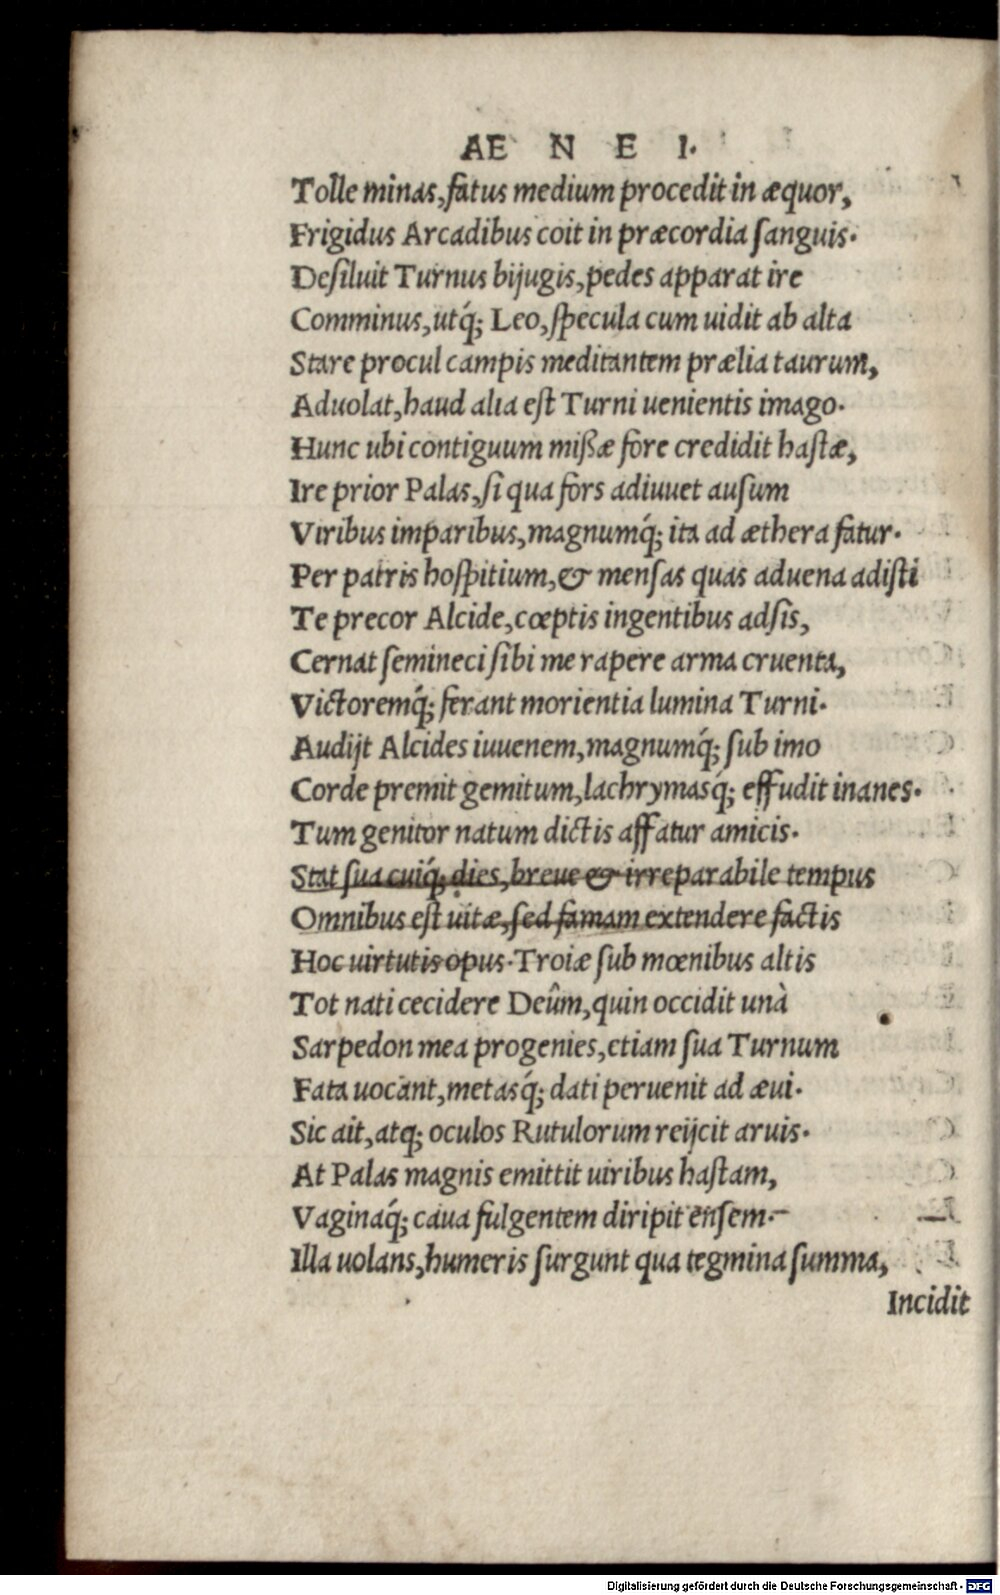 AE N E I.
Tolle minas, fatus medium procedit in æquor,
Frigidus Arcadibus coit in præcordia ſanguis.
Deſiluit Turnus bijugis, pedes apparat ire
Comminus, utq́; Leo, ſpecula cum uidit ab alta
Stare procul campis meditantem prælia taurum,
Aduolat, haud alia eſt Turni uenientis imago.
Hunc ubi contiguum mißæ fore credidit haſtæ,
Ire prior Palas, ſi qua fors adiuuet auſum
Viribus imparibus, magnumq́; ita ad æthera fatur.
Per patris hoſpitium, & menſas quas aduena adiſti
Te precor Alcide, cœptis ingentibus adſis,
Cernat ſemineci ſibi me rapere arma cruenta,
Victoremq́; ferant morientia lumina Turni.
Audijt Alcides iuuenem, magnumq́; ſub imo
Corde premit gemitum, lachrymasq́; effudit inanes.
Tum genitor natum dictis affatur amicis.
Stat ſua cuiq́; dies, breue & irreparabile tempus
Omnibus eſt uitæ, ſed famam extendere factis
Hoc uirtutis opus. Troiæ ſub mœnibus altis
Tot nati cecidere Deûm, quin occidit unà
Sarpedon mea progenies, etiam ſua Turnum
Fata uocant, metasq́; dati peruenit ad æui.
Sic ait, atq; oculos Rutulorum reijcit aruis.
At Palas magnis emittit uiribus haſtam,
Vaginaq́; caua fulgentem diripit enſem.
Illa uolans, humeris ſurgunt qua tegmina ſumma,
Incidit
Digitalisierung gefördert durch die Deutsche Forschungsgemeinschaft - DFG